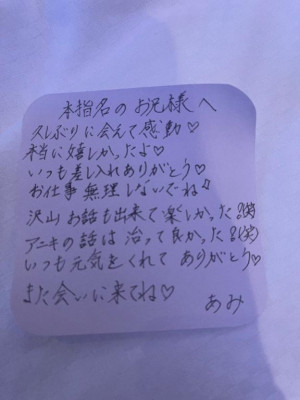 本指名のお兄様へ
久しぶりに会えて感動♡
本当に嬉しかったよ♡
いつも差し入れありがとう♡
お仕事無理しないでね
沢山お話も出来て楽しかった
アニキの話は治って良かった
いつも元気をくれてありがとう♡
また会いに来てね♡
あみ